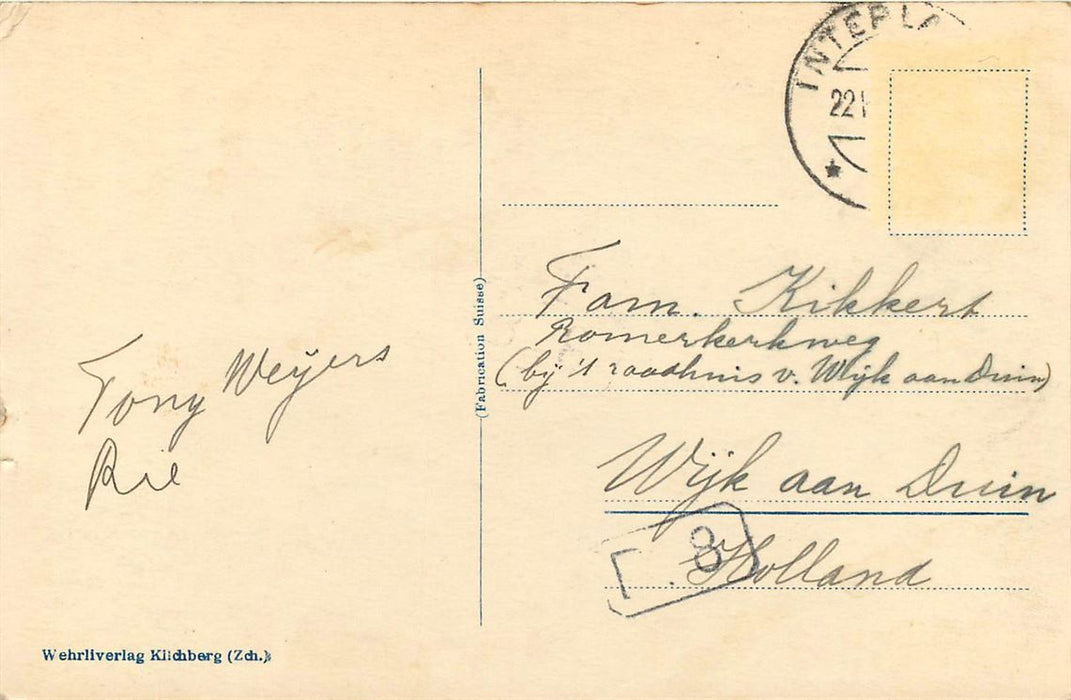 INTERLA
22
Fam. Kikkert
Romerkerkweg
(bij 't raadhuis v. Wijk aan Duin)
Wijk aan Duin
Holland
8
Tony Weijers
Rie
(Fabrication Suisse)
Wehrliverlag Kilchberg (Zch.)